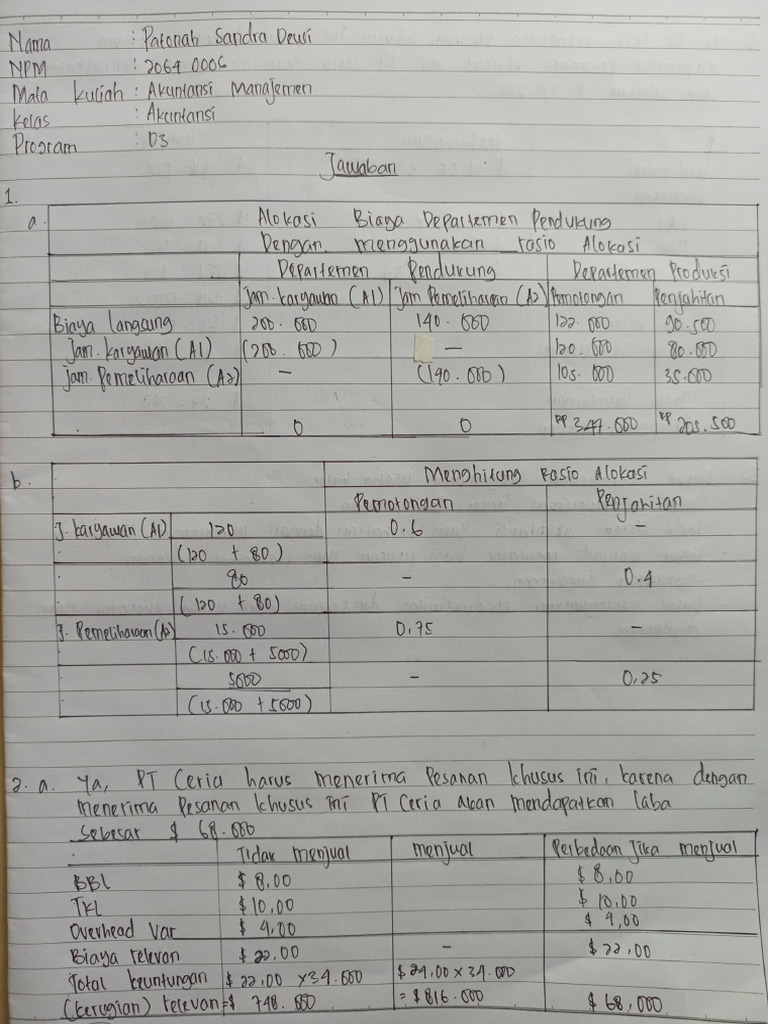 Nama : Patonah Sandra Dewi
NPM : 2064 0006
Mata kuliah : Akuntansi Manajemen
Kelas : Akuntansi
Program : D3
Jawaban
1.
a. Alokasi Biaya Departemen Pendukung
Dengan menggunakan rasio Alokasi
Departemen Pendukung Departemen Produksi
Jam. karyawan (A1) Jam Pemeliharaan (A2) Pemotongan Penjahitan
Biaya langsung 200.000 140.000 122.000 90.500
Jam. karyawan (A1) (200.000) – 120.000 80.000
Jam. Pemeliharaan (A2) – (140.000) 105.000 35.000
0 0 Rp 347.000 Rp 205.500
b. Menghitung Rasio Alokasi
Pemotongan Penjahitan
J. karyawan (A1) 120 0.6 –
(120 + 80)
80 – 0.4
(120 + 80)
J. Pemeliharaan (A2) 15.000 0.75 –
(15.000 + 5000)
5000 – 0.25
(15.000 + 5000)
2. a. Ya, PT Ceria harus menerima Pesanan khusus ini, karena dengan
menerima Pesanan khusus ini PT Ceria akan mendapatkan laba
sebesar $ 68.000
Tidak menjual menjual Perbedaan Jika menjual
BBL $ 8,00 $ 8,00
TKL $ 10,00 $ 10,00
Overhead Var $ 4,00 $ 4,00
Biaya relevan $ 22,00 – $ 22,00
Total keuntungan $ 22,00 x 34.000 $ 24,00 x 34.000
(kerugian) relevan = $ 748.000 = $ 816.000 $ 68,000